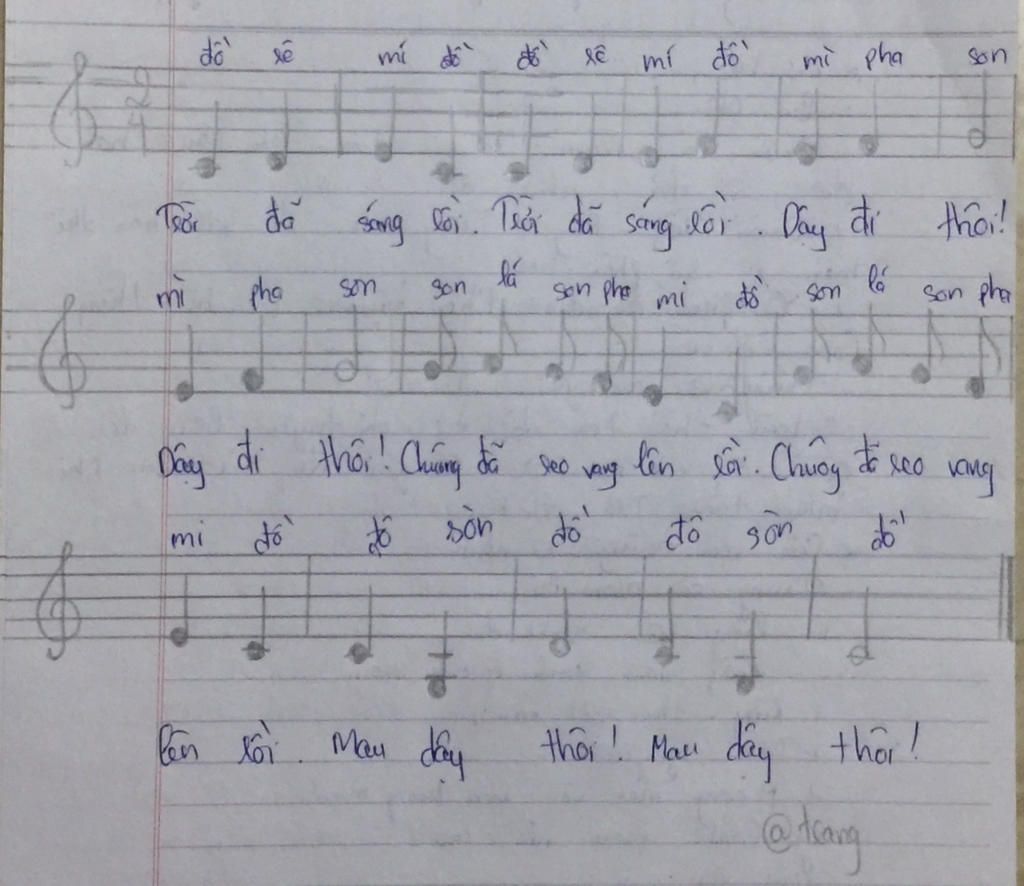 đồ rê mí đồ đồ rê mí đồ mì pha son
2
4
Trời đã sáng rồi. Trời đã sáng rồi. Dậy đi thôi!
mì pha son son lá son pha mi đồ son lá son pha
Dậy đi thôi! Chuông đã reo vang lên rồi. Chuôg đã reo vang
mi đồ đô sòn đố đô sòn đố
lên rồi. Mau dậy thôi! Mau dậy thôi!
@trang